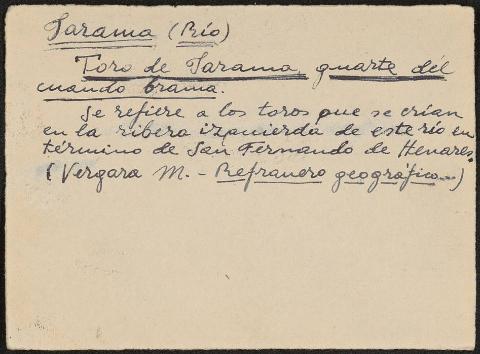 Jarama (Río)
Toro de Jarama, guarte del
cuando brama.
Se refiere a los toros que se crían
en la ribera izquierda de este río en
término de San Fernando de Henares.
(Vergara M. - Refranero geográfico...)